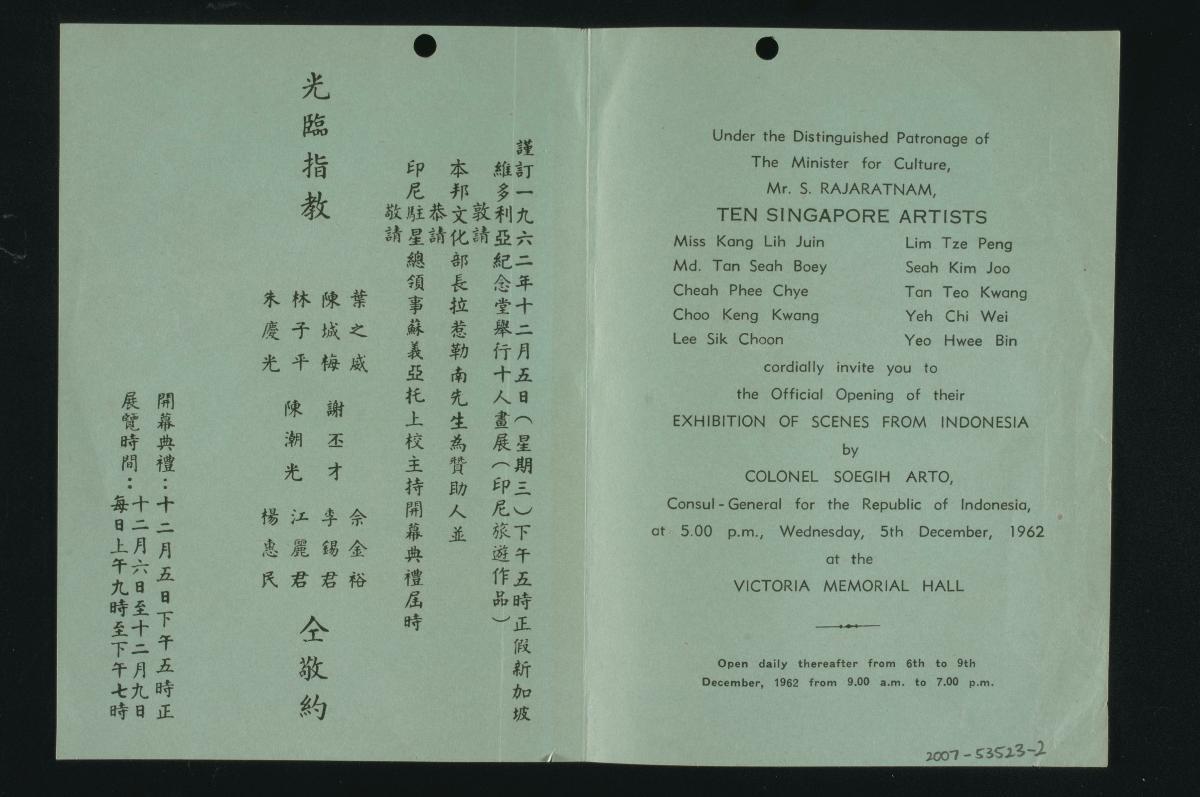 謹訂一九六二年十二月五日（星期三）下午五時正假新加坡
維多利亞紀念堂舉行十人畫展（印尼旅遊作品）
敦請
本邦文化部長拉惹勒南先生為贊助人並
恭請
印尼駐星總領事蘇義亞托上校主持開幕典禮屆時
敬請
光臨指教
葉之威 謝丕才 佘金裕
陳城梅 李錫君
林子平 陳潮光 江麗君
朱慶光 楊惠民
仝敬約
開幕典禮：十二月五日下午五時正
展覽時間：十二月六日至十二月九日
每日上午九時至下午七時
Under the Distinguished Patronage of
The Minister for Culture,
Mr. S. RAJARATNAM,
TEN SINGAPORE ARTISTS
Miss Kang Lih Juin Lim Tze Peng
Md. Tan Seah Boey Seah Kim Joo
Cheah Phee Chye Tan Teo Kwang
Choo Keng Kwang Yeh Chi Wei
Lee Sik Choon Yeo Hwee Bin
cordially invite you to
the Official Opening of their
EXHIBITION OF SCENES FROM INDONESIA
by
COLONEL SOEGIH ARTO,
Consul-General for the Republic of Indonesia,
at 5.00 p.m., Wednesday, 5th December, 1962
at the
VICTORIA MEMORIAL HALL
Open daily thereafter from 6th to 9th
December, 1962 from 9.00 a.m. to 7.00 p.m.
2007-53523-2